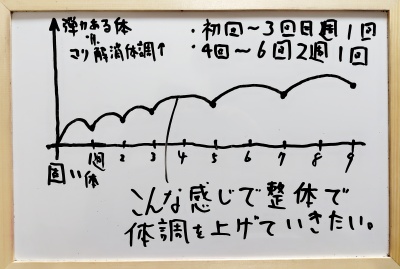 弾力ある体
コリ解消体調↑
・初回～3回目週1回
・4回～6回2週1回
1回 2 3 4 5 6 7 8 9
固い体
こんな感じで整体で
体調を上げていきたい。